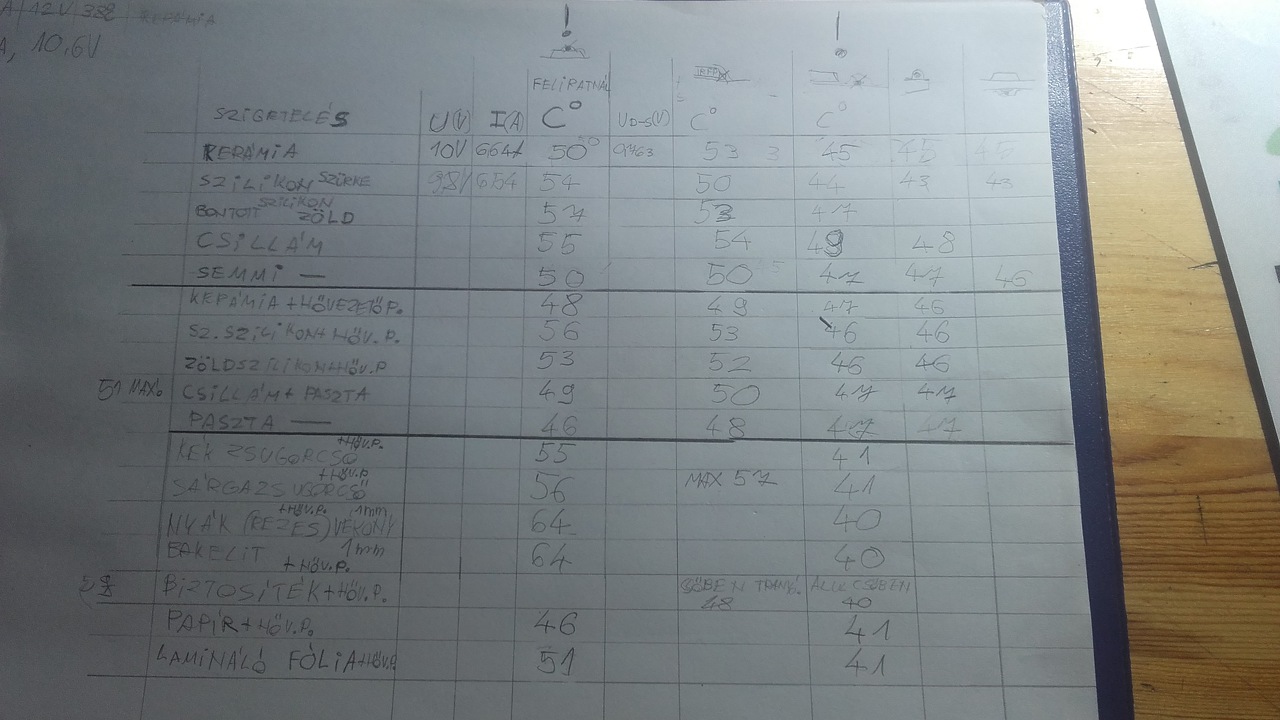 A / 12V / 38Ω KERÁMIA
A, 10,6V
! !
FELIRATNÁL
SZIGETELÉS U(V) I(A) C° UD-S(V) C° C°
KERÁMIA 10V 50° 53 3 45 45 45
SZILIKON SZÜRKE 9,8V 654 54 50 44 43 43
BONTOTT SZILIKON ZÖLD 57 53 47
CSILLÁM 55 54 49 48
SEMMI — 50 50 47 47 46
KERÁMIA + HŐVEZETŐ P. 48 49 47 46
SZ. SZILIKON + HŐV. P. 56 53 46 46
ZÖLD SZILIKON + HŐV. P 53 52 46 46
51 MAX. CSILLÁM + PASZTA 49 50 47 47
PASZTA — 46 48 47 47
KÉK ZSUGORCSŐ + HŐV.P. 55 41
SÁRGA ZSUGORCSŐ + HŐV.P 56 MAX 57 41
NYÁK (REZES) VÉKONY + HŐV.P. 1mm 64 40
BAKELIT 1mm + HŐV.P. 64 40
BIZTOSÍTÉK + HŐV.P. CSŐBEN TRANZ. CSŐBEN
48 40
PAPÍR + HŐV.P. 46 41
LAMINÁLÓ FÓLIA + HŐV.P 51 41